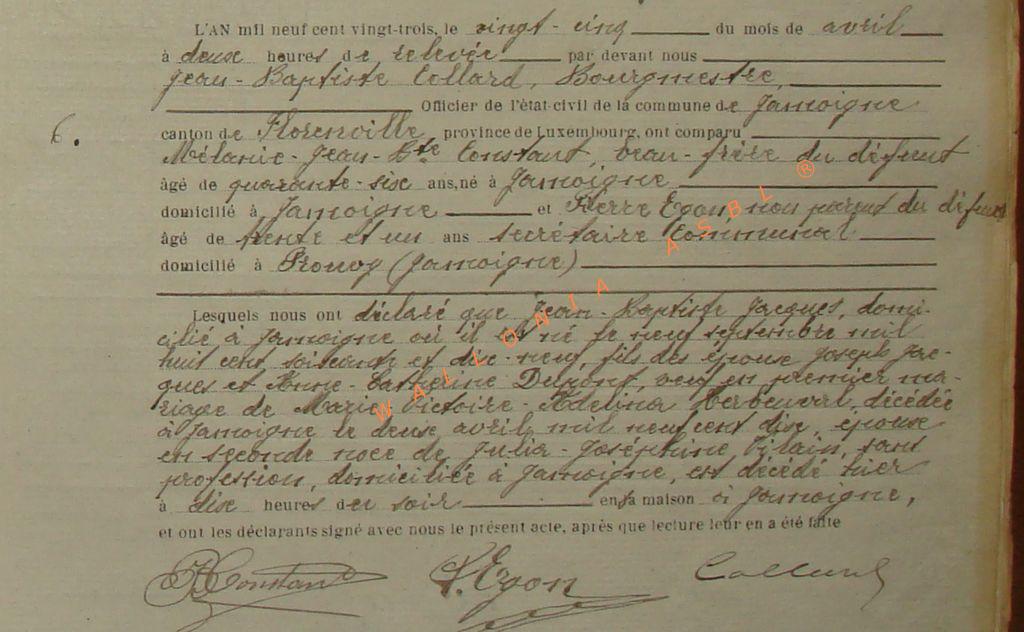 L'AN mil neuf cent vingt-trois, le vingt-cinq du mois de avril
à deux heures de relevée par devant nous
Jean-Baptiste Collard, Bourgmestre,
Officier de l'état-civil de la commune de Jamoigne
6. canton de Florenville, province de Luxembourg, ont comparu
Mélanie-Jean-Bte Constant, beau-frère du défunt
âgé de quarante-six ans, né à Jamoigne
domicilié à Jamoigne et Pierre Egon non parent du défunt
âgé de trente et un ans secrétaire Communal
domicilié à Prouvy (Jamoigne)
Lesquels nous ont déclaré que Jean-Baptiste Jacques, domi-
cilié à Jamoigne où il est né le neuf septembre mil
huit cent soixante et dix-neuf, fils des époux Joseph Jac-
ques et Anne-Catherine Dupont, veuf en premier ma-
riage de Marie-Victoire-Adelina Herbeuval, décédée
à Jamoigne le deux avril mil neuf cent dix, époux
en seconde noce de Julia-Joséphine Gilain, sans
profession, domiciliée à Jamoigne, est décédé hier
à dix heures du soir en sa maison à Jamoigne,
et ont les déclarants signé avec nous le présent acte, après que lecture leur en a été faite
JBConstant P. Egon Collard
WALLONIA ASBL ®